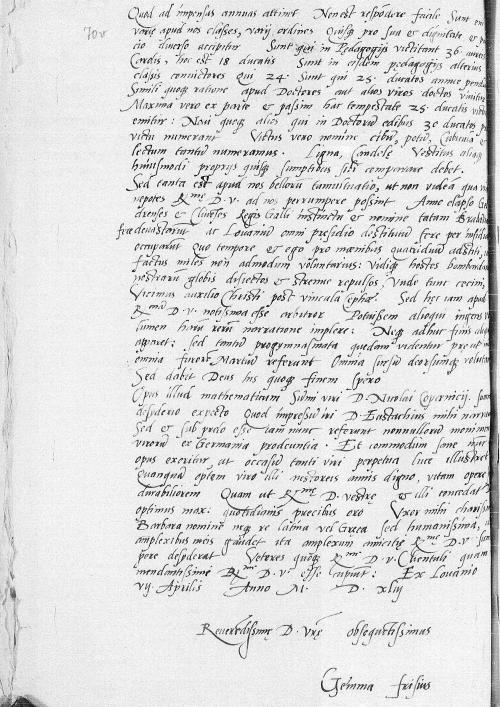 70v
Quod ad impensas annuas attinet Non est respondere facile Sunt enim
varij apud nos classes, varij ordines Quisq pro sua et dignitate et pre
cio diverso accipitur Sunt qui in Pedagogijs victitant 36 aureis
Cardis, hoc est 18 ducatis Sunt in eisdem pedagogijs alterius
classis convictores qui 24. Sunt qui 25. ducatos annue pendunt
Simili quoq ratione apud Doctores aut alios viros doctos vivitur
Maxima vero ex parte et passim hac tempestate 25. ducatis victus
emitur: Novi quoq alios qui in Doctorum edibus 30 ducatos pro
victu numerant Victus vero nomine cibum, potum, Cubicula et
lectum tantum numeramus. Ligna, Candele Vestitus aliaq
huiusmodi proprijs quisq sumptibus sibi comparare debet.
Sed tanta est apud nos bellorum tumultuatio, ut non videa qua via
nepotes R.me D. v. ad nos perrumpere possint Anno elapso Gel
drenses et Clivenses Regis Galli instinctu et nomine totam Brabantiam
fere devastarunt ac Lovanium omni presidio destitutum fere per insidias
occuparunt Quo tempore et ego pro menibus quatriduum adstiti,
factus miles non admodum voluntarius: Vidiq hostes bombardarum
nostrarum globis disiectos et strenue repulsos, Unde tunc cecini,
Vicimus auxilio Christi post vincula Cephae. Sed hec iam apud
R.mam D. v. notissima esse arbitror Potuissem alioqui ingens vo
lumen harum rerum narratione implere: Neq adhuc finis ullus
apparet: sed tantum progymnasmata quedam videntur pre ut
omnia furere Martium referunt Omnia sursum deorsumq volutantur
Sed dabit Deus his quoq finem spero
Opus illud mathematicum Summi viri D. Nicolai Copernicij. summo
desyderio expecto Quod impressum iri D. Eustachius mihi narravit
Sed et sub prelo esse iam nunc referunt nonnullorum monimenta
virorum ex Germania prodeuntia. Et commodum sane hunc
opus exoritur, ut occasum tanti viri perpetua luce illustret
Quanquam optem viro illi nestoreis annis digno, vitam opere
durabiliorem Quam ut R.me D. vestre et illi concedat Deus
optimus max. quotidianis precibus oro Uxor mihi charissima
Barbara nomine neq re latina vel Greca sed humanissima, ut
amplexibus meis gaudet ita amplexum amicitie R.me D. v. sem
pere desyderat Vetores quoq R.me D. v. Clientuli quam
mendatissimi R.me D. v. esse cupiunt: Ex Lovanio
vij Aprilis Anno M. D. xliij
Reverendissime D. vre obsequetissimus
Gemma frisius